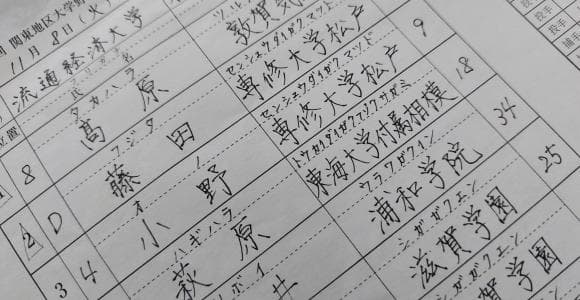 関東地区大学野
11月8日(火)
流通経済大学
位置
敦賀気
タカハラ センシュウダイガクマツド
8 髙原 専修大学松戸 9
フジタ センシュウダイガクマツド
2 D 藤田 専修大学松戸 18
オノ トウカイダイガクフゾクサガミ
3 4 小野 東海大学付属相模 34
ハギハラ ウラワガクイン
萩原 浦和学院 25
ボイ シガガクエン
井 滋賀学園
賀学園